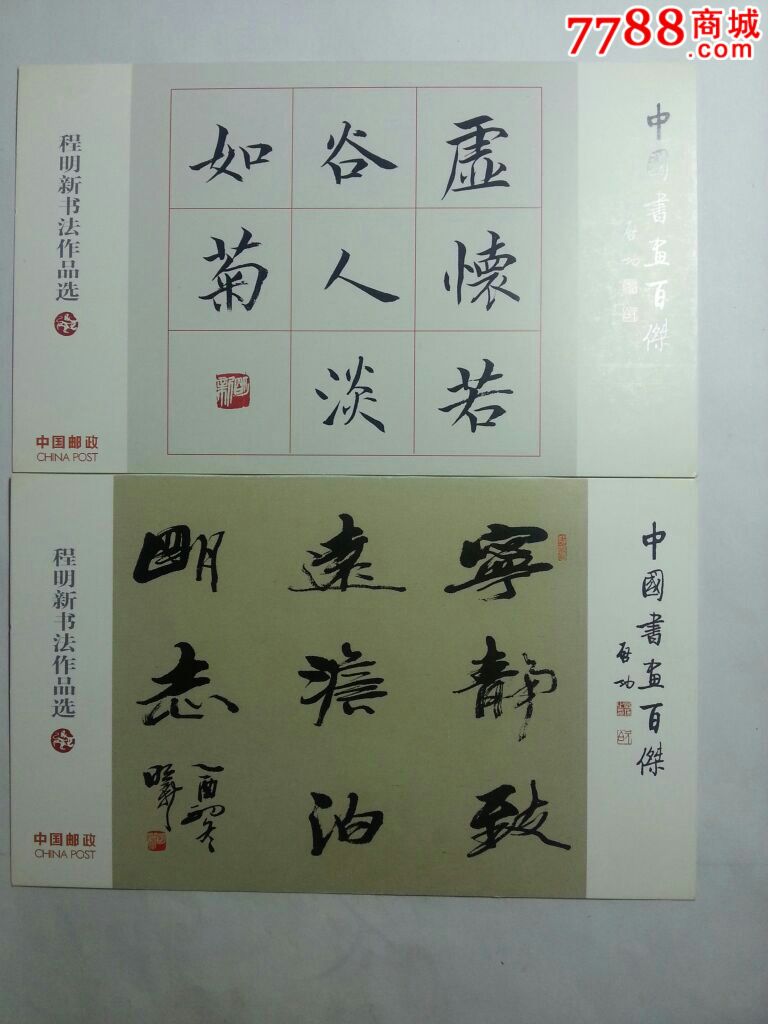 7788商城
.com
中國书画百傑
启功
虚懷若
谷人淡
如菊
程明新书法作品选
中国邮政
CHINA POST
中國书画百傑
启功
寧静致
遠澹泊
明志
乙酉初冬
程明新书法作品选
中国邮政
CHINA POST